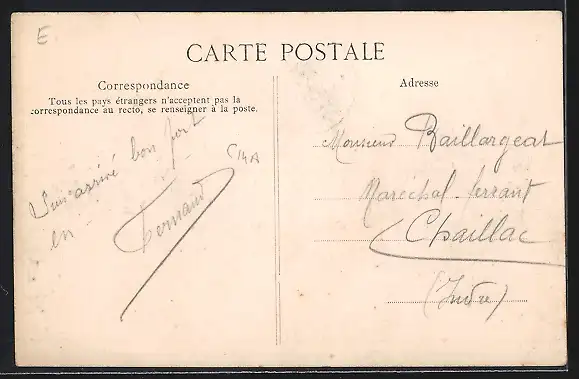 E
CARTE POSTALE
Correspondance
Tous les pays étrangers n'acceptent pas la
correspondance au recto, se renseigner à la poste.
Adresse
arrivé bon port
en
Fernand
Monsieur Baillargeat
Maréchal-ferrant
Chaillac
(Indre)